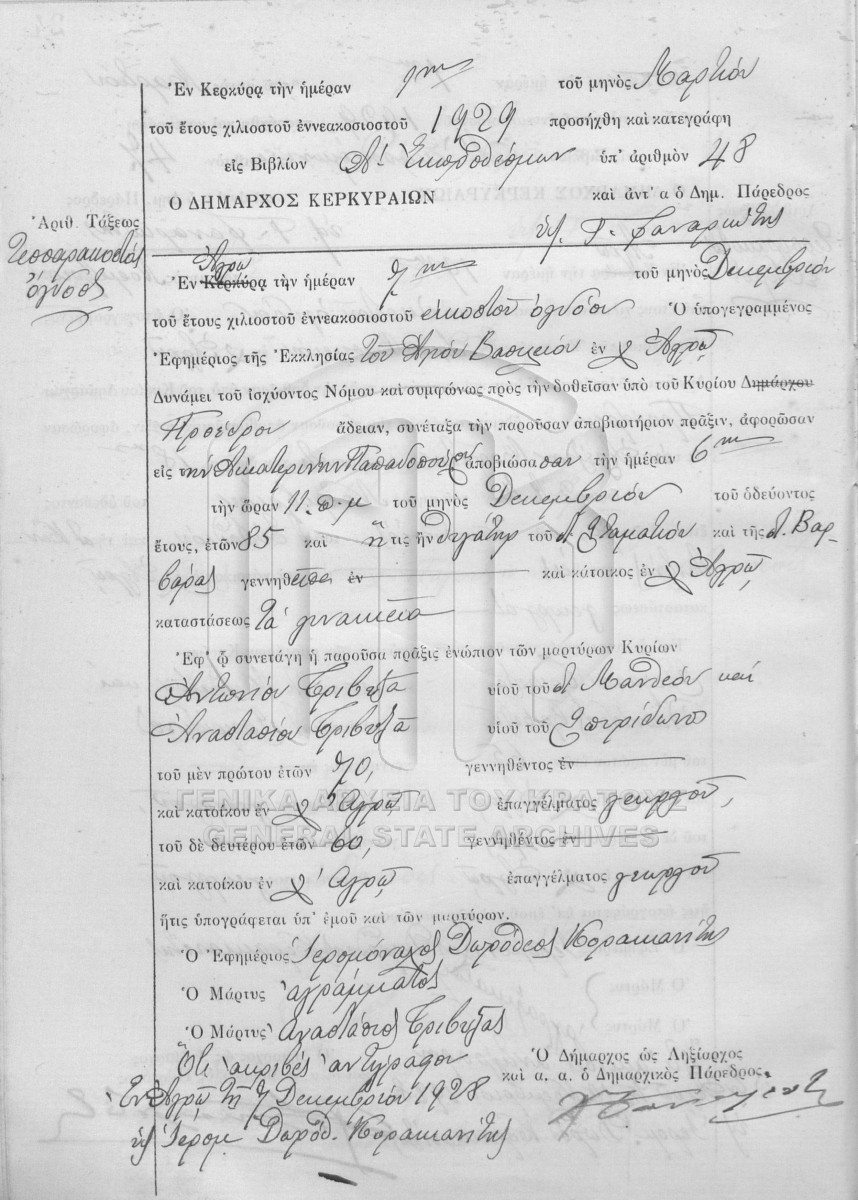 Ἐν Κερκύρᾳ τὴν ἡμέραν 1ην τοῦ μηνὸς Μαρτίου
τοῦ ἔτους χιλιοστοῦ ἐννεακοσιοστοῦ 1929 προσήχθη καὶ κατεγράφη
εἰς Βιβλίον Α' Ἐκπροθέσμων ὑπ' ἀριθμὸν 48
Ο ΔΗΜΑΡΧΟΣ ΚΕΡΚΥΡΑΙΩΝ καὶ ἀντ' α ὁ Δημ. Πάρεδρος
Γ. Φαναριώτης
Ἀριθ. Τάξεως
Τεσσαρακοστὸς
ὄγδοος
Ἀγρῷ
Ἐν Κερκύρᾳ τὴν ἡμέραν 7ην τοῦ μηνὸς Δεκεμβρίου
τοῦ ἔτους χιλιοστοῦ ἐννεακοσιοστοῦ εἰκοστοῦ ὀγδόου Ὁ ὑπογεγραμμένος
Ἐφημέριος τῆς Ἐκκλησίας τοῦ Ἁγίου Βασιλείου ἐν Ἀγρῷ
Δυνάμει τοῦ ἰσχύοντος Νόμου καὶ συμφώνως πρὸς τὴν δοθεῖσαν ὑπὸ τοῦ Κυρίου Δημάρχου
Προέδρου ἄδειαν, συνέταξα τὴν παροῦσαν ἀποβιωτήριον πρᾶξιν, ἀφορῶσαν
εἰς τὴν Αἰκατερίνην Παπαδοπούλου ἀποβιώσασαν τὴν ἡμέραν 6ην
τὴν ὥραν 11 π.μ τοῦ μηνὸς Δεκεμβρίου τοῦ ὁδεύοντος
ἔτους, ἐτῶν 85 καὶ ἥτις ἦν θυγάτηρ τοῦ π. Σταματίου καὶ τῆς π. Βαρ-
βάρας γεννηθεῖσα ἐν καὶ κάτοικος ἐν Ἀγρῷ
καταστάσεως τὰ γυναικεῖα
Ἐφ' ᾧ συνετάγη ἡ παροῦσα πρᾶξις ἐνώπιον τῶν μαρτύρων Κυρίων
Ἀντωνίου Τριβυζᾶ υἱοῦ τοῦ π. Μανθέου καὶ
Ἀναστασίου Τριβυζᾶ υἱοῦ τοῦ Σπυρίδωνος
τοῦ μὲν πρώτου ἐτῶν 70, γεννηθέντος ἐν
καὶ κατοίκου ἐν Ἀγρῷ, ἐπαγγέλματος γεωργοῦ,
τοῦ δὲ δευτέρου ἐτῶν 60, γεννηθέντος ἐν
καὶ κατοίκου ἐν Ἀγρῷ ἐπαγγέλματος γεωργοῦ
ἥτις ὑπογράφεται ὑπ' ἐμοῦ καὶ τῶν μαρτύρων.
Ὁ Ἐφημέριος Ἱερομόναχος Δωρόθεος Κορακιανίτης
Ὁ Μάρτυς ἀγράμματος
Ὁ Μάρτυς Ἀναστάσιος Τριβυζᾶς
Ὅτι ἀκριβὲς ἀντίγραφον
Ἐν Ἀγρῷ τῇ 7 Δεκεμβρίου 1928
Ἱερομ Δωρόθ. Κορακιανίτης
Ὁ Δήμαρχος ὡς Ληξίαρχος
καὶ α. α. ὁ Δημαρχικὸς Πάρεδρος.
ΓΕΝΙΚΑ ΑΡΧΕΙΑ ΤΟΥ ΚΡΑΤΟΥΣ
GENERAL STATE ARCHIVES